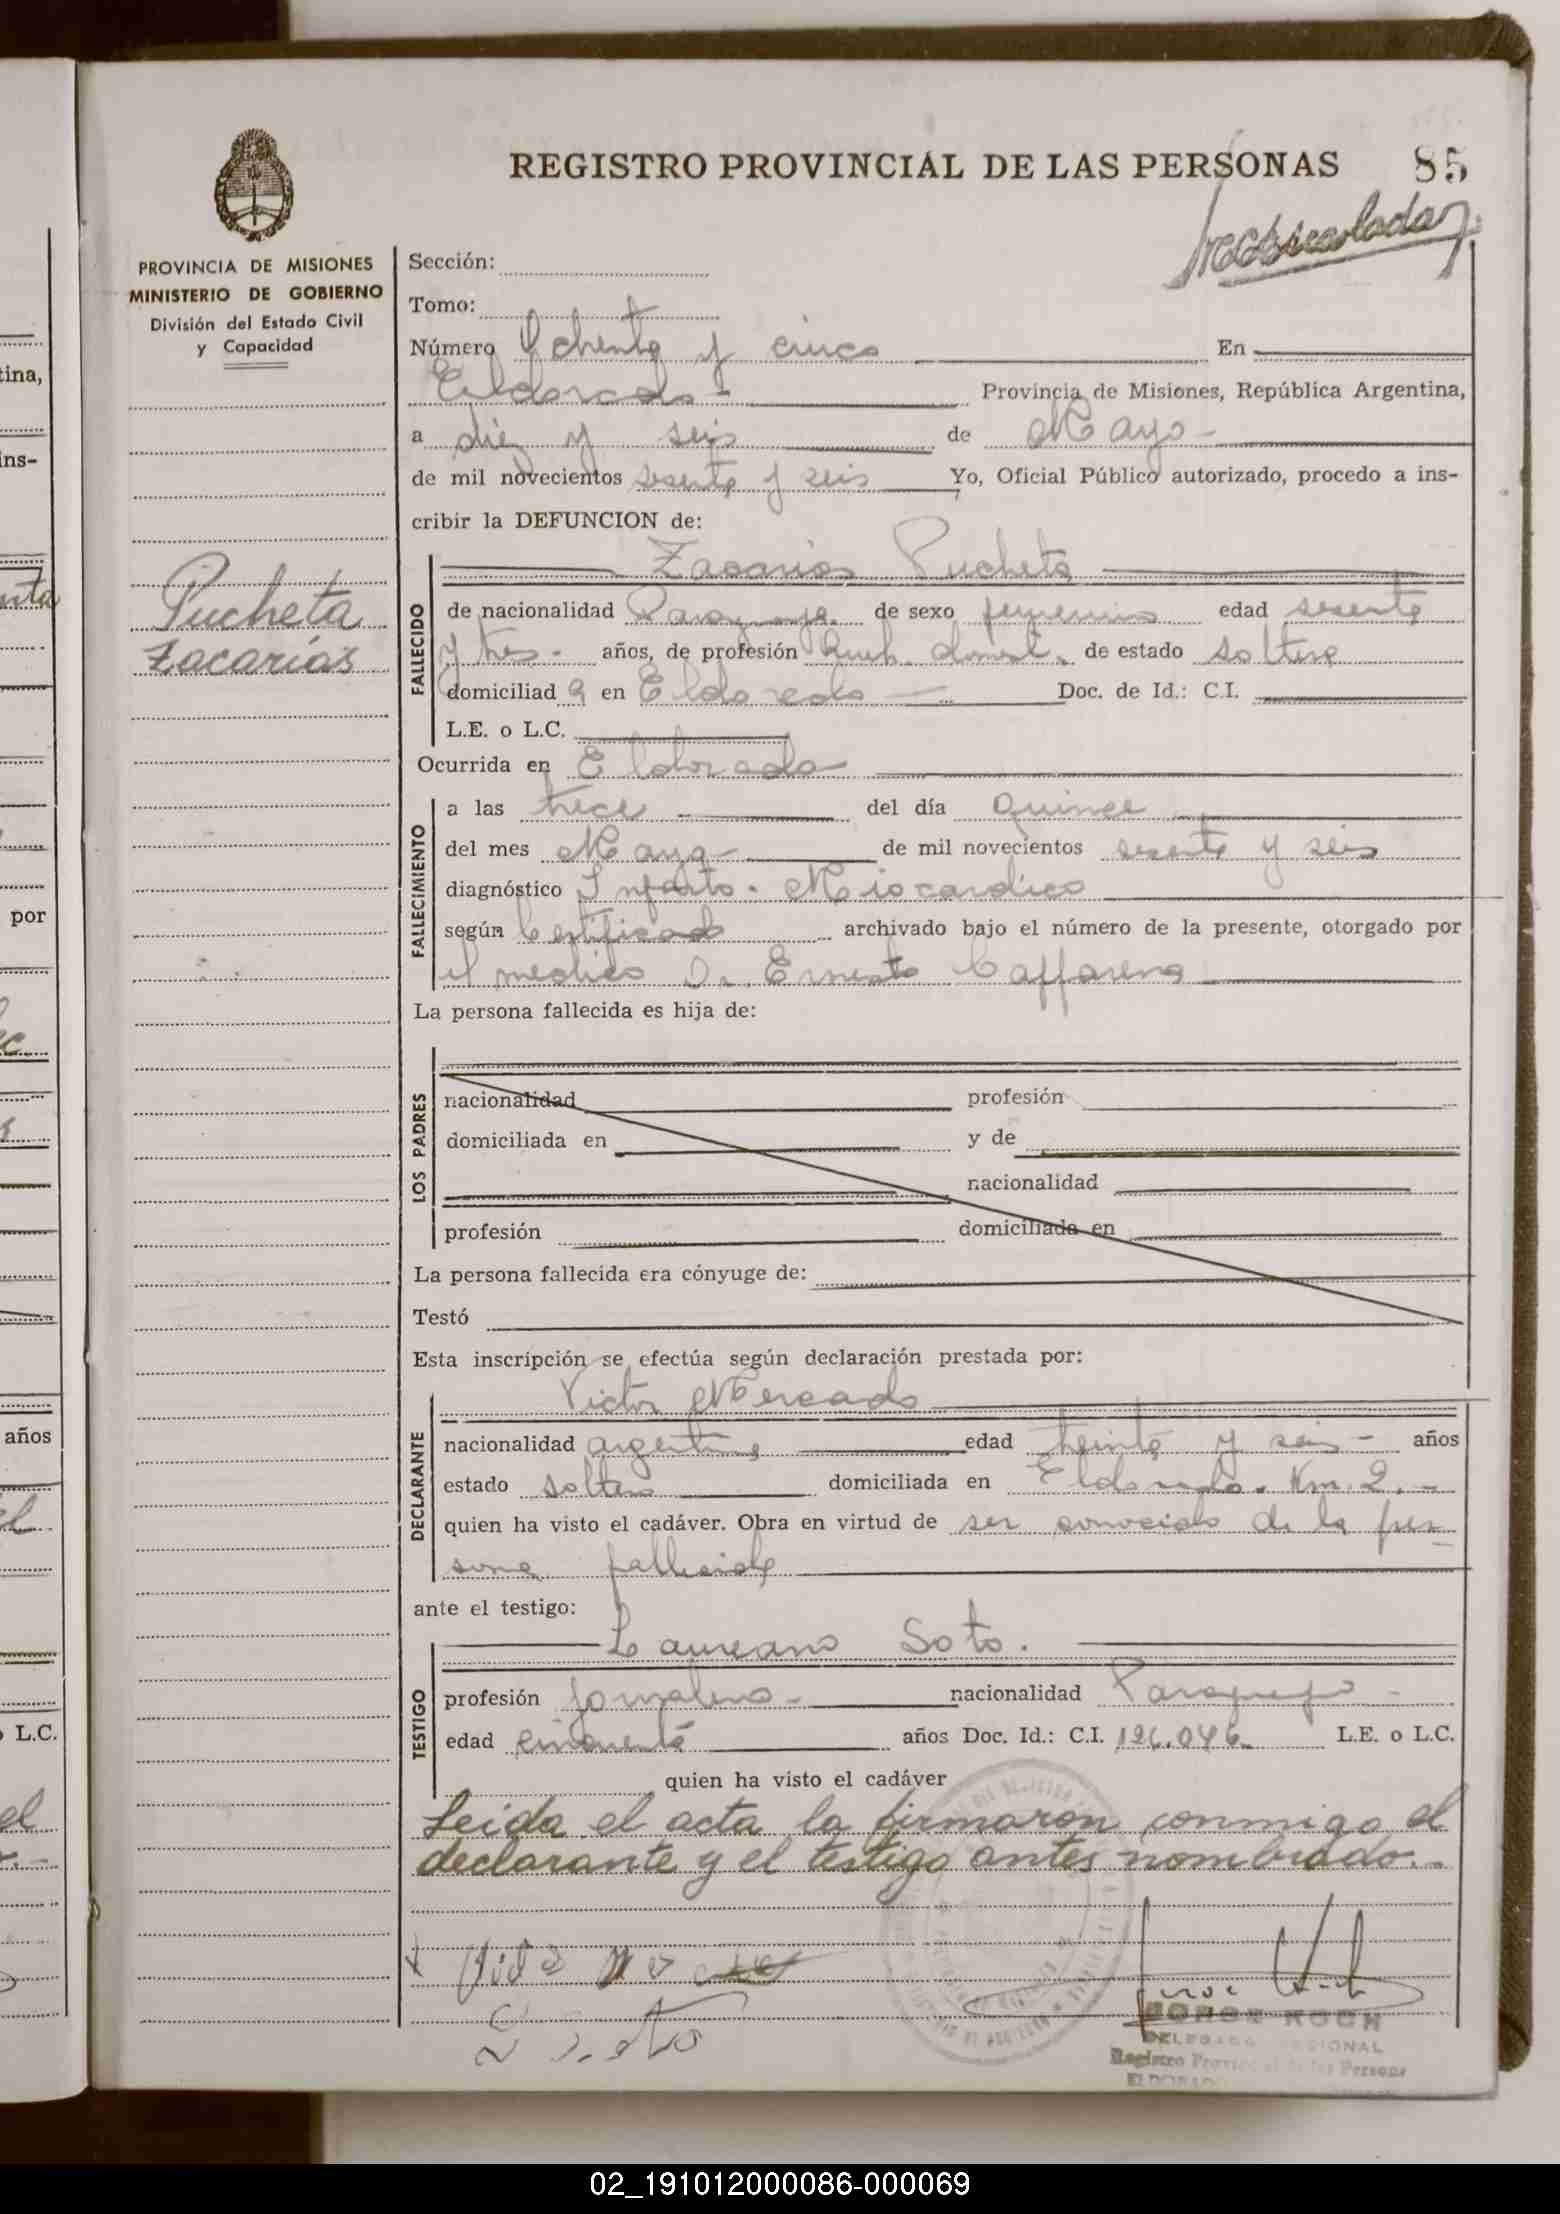 REGISTRO PROVINCIAL DE LAS PERSONAS 85
PROVINCIA DE MISIONES
MINISTERIO DE GOBIERNO
División del Estado Civil
y Capacidad
Pucheta
Zacarías
Sección:
Tomo:
Número Ochenta y cinco En
Eldorado - Provincia de Misiones, República Argentina,
a diez y seis de Mayo -
de mil novecientos sesenta y seis Yo, Oficial Público autorizado, procedo a ins-
cribir la DEFUNCION de:
Zacarías Pucheta
FALLECIDO
de nacionalidad Paraguaya de sexo femenino edad sesenta
y tres - años, de profesión Queh. domést. de estado soltera
domiciliad a en Eldorado Doc. de Id.: C.I.
L.E. o L.C.
Ocurrida en Eldorado
FALLECIMIENTO
a las trece del día quince
del mes Mayo de mil novecientos sesenta y seis
diagnóstico Infarto - Miocardico
según Certificado archivado bajo el número de la presente, otorgado por
el medico Dr. Ernesto Caffarena
La persona fallecida es hija de:
LOS PADRES
nacionalidad profesión
domiciliada en y de
nacionalidad
profesión domiciliada en
La persona fallecida era cónyuge de:
Testó
Esta inscripción se efectúa según declaración prestada por:
Victor Mercado
DECLARANTE
nacionalidad argentina edad treinta y seis - años
estado soltero domiciliada en Eldorado. Km. 2. -
quien ha visto el cadáver. Obra en virtud de ser conocido de la per-
sona fallecida
ante el testigo:
Laureano Soto.
TESTIGO
profesión Jornalero - nacionalidad Paraguayo -
edad cincuenta años Doc. Id.: C.I. 126.046. L.E. o L.C.
quien ha visto el cadáver
Leida el acta la firmaron conmigo el
declarante y el testigo antes nombrado. -
JORGE KOCH
DELEGADO REGIONAL
Registro Provincial de las Personas
ELDORADO
02_191012000086-000069